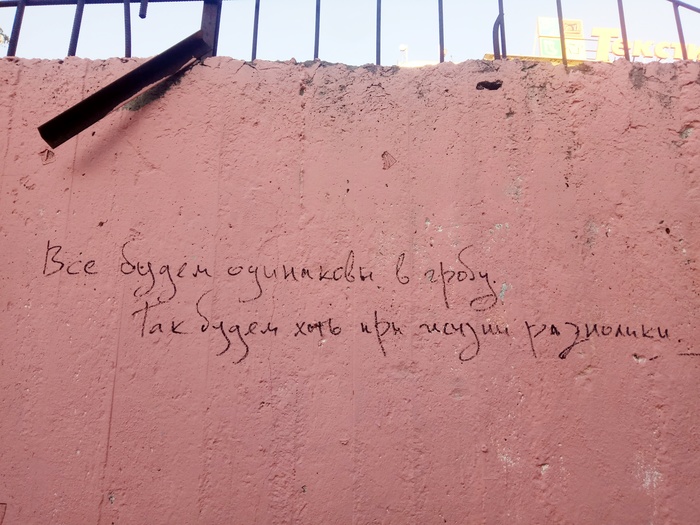 Текст
Все будем одинаковы в гробу.
Так будем хоть при жизни разнолики.